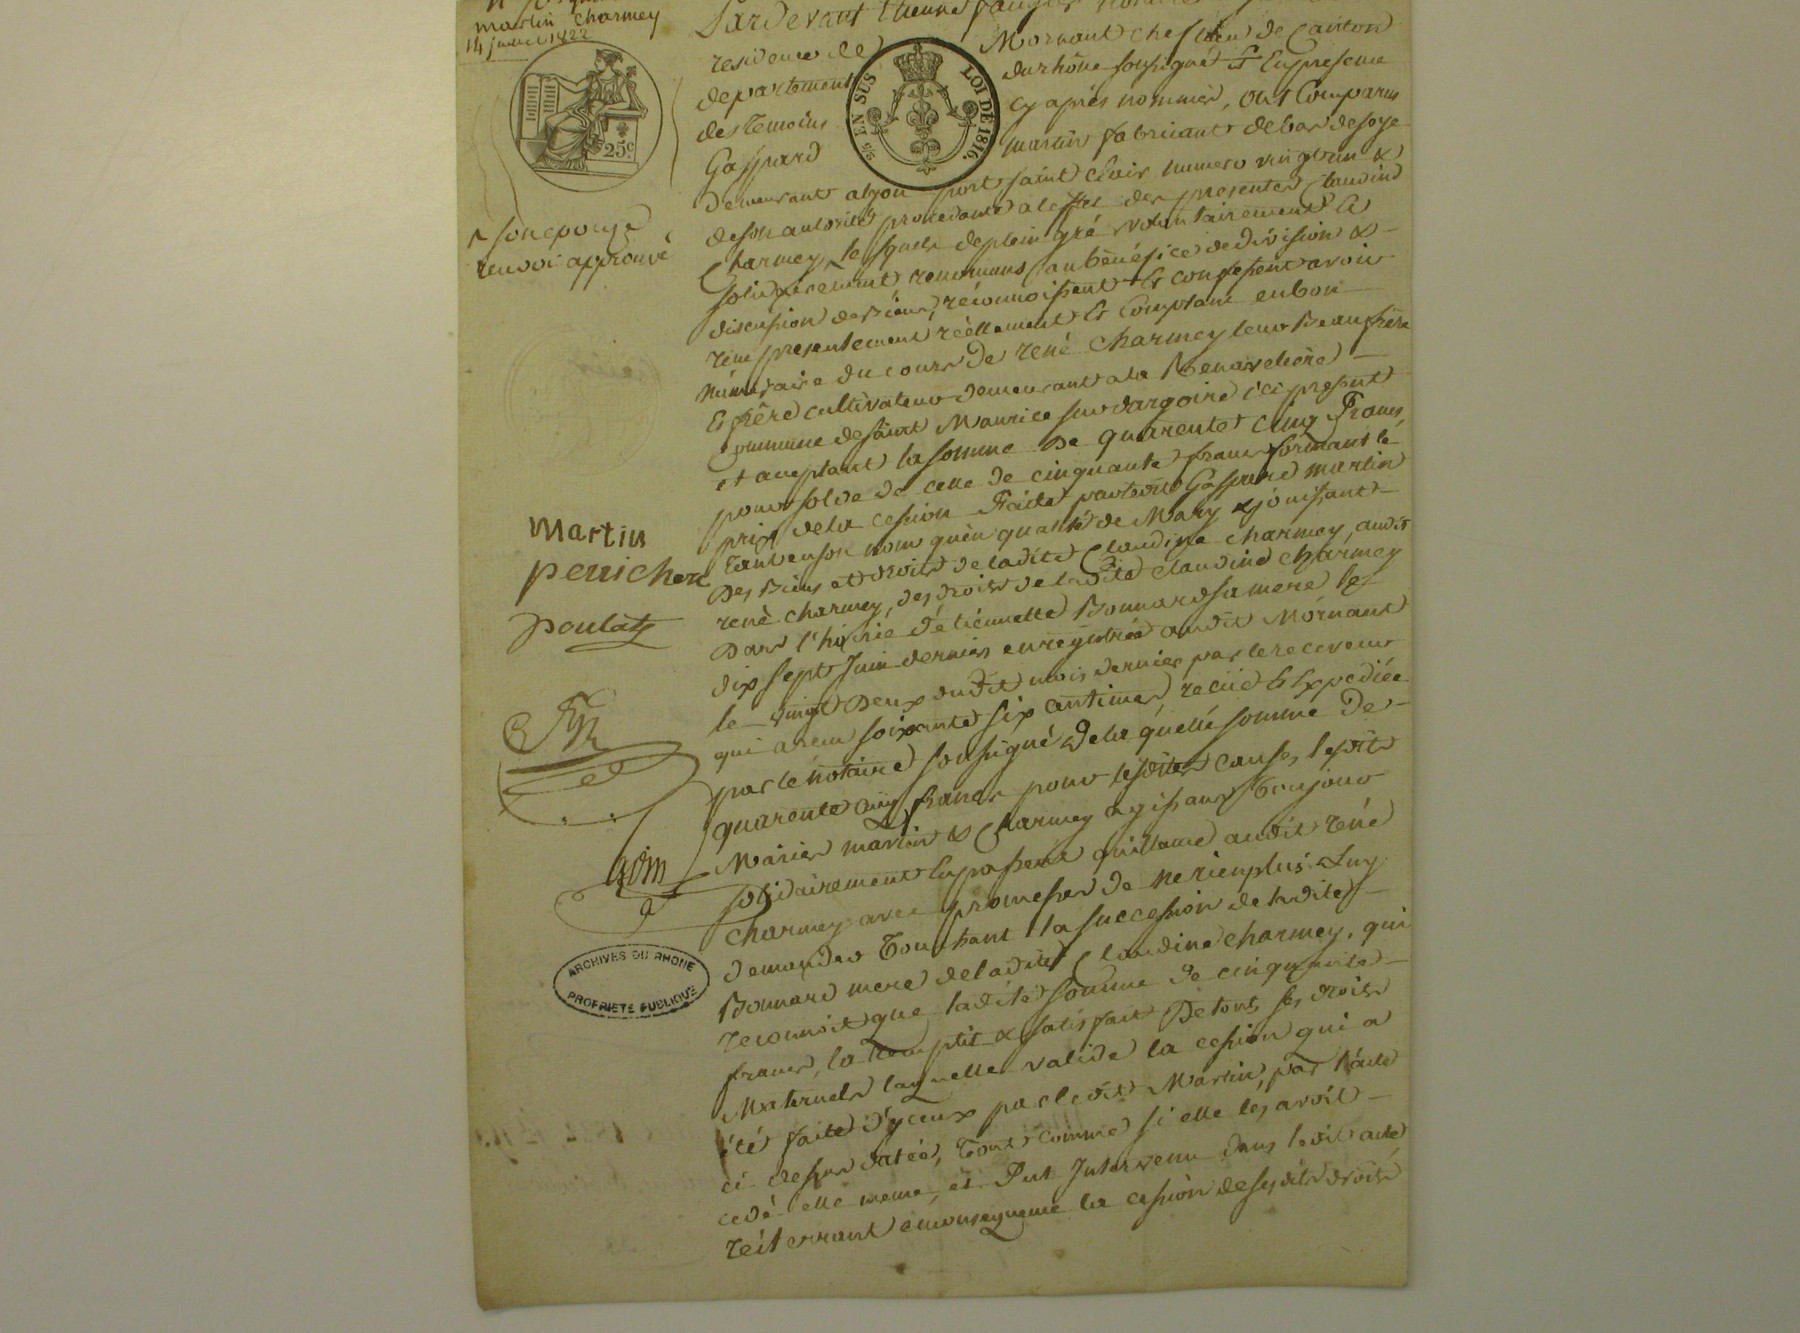 martin charmey
14 juillet 1822
25c.
5/5 EN SUS
LOI DE 1816.
Pardevant notaire
residence de Mornant chef lieu de Canton
departement du rhône soussigné Et Enpresence
des temoins cy après nommés, ont Comparus
Gaspard martin fabricant de bas de soye
demeurant alyon port saint Clair numero vingt un &
de son autorité procedante aleffet des presentes Claudine
Charmey, lesquels de plein gré & volontairement &
solidairement renoncans au bénéfice de division &
discussion de Biens, réconnoissent & confessent avoir
reçu presentement réellement Et Comptant en bon
numeraire du cours de rené charmey leur Beaufrère
Et frère cultivateur demeurant a la
Commune de saint Maurice sur dargoire ici present
et acceptant la somme de quarente cinq Francs,
pour solde de celle de cinquante francs formant le
prix de la cession Faite par ledit Gaspard martin
tant en son nom qu'en qualité de Mary & jouissant
des Biens et droits de ladite Claudine charmey, audit
rené charmey, des droits de ladite claudine charmey
Dans l'hoirie d'étiennette Bonnard sa mere le
dix sept Juin dernier enregistrée audit Mornant
le vingt Deux dudit mois dernier par le receveur
qui a reçu soixante six centimes, recue & Expediée
par le notaire soussigné de la quelle somme de
quarente cinq francs pour lesdites causes, lesdits
Mariés martin & Charmey agissant toujours
solidairement en passent quittance audit rené
charmey avec promesse de ne rien plus Luy
demander Touchant la succession de ladite
Bonnard mere de ladite Claudine charmey, qui
reconnoit que ladite somme de cinquante
francs, la remplit & satisfait De tous ses droits
Maternels laquelle valide la cession qui a
été faite d'yceux par ledit Martin, par l'acte
ci dessus datée, Tout comme si elle les avoit
cedé elle meme, et Fut Intervenu dans ledit acte
reiterrant enconsequence la cession desesdits droits
^ son epouse
renvoi approuvé
Martin
perrichon
poulat
ARCHIVES DU RHONE
PROPRIETE PUBLIQUE